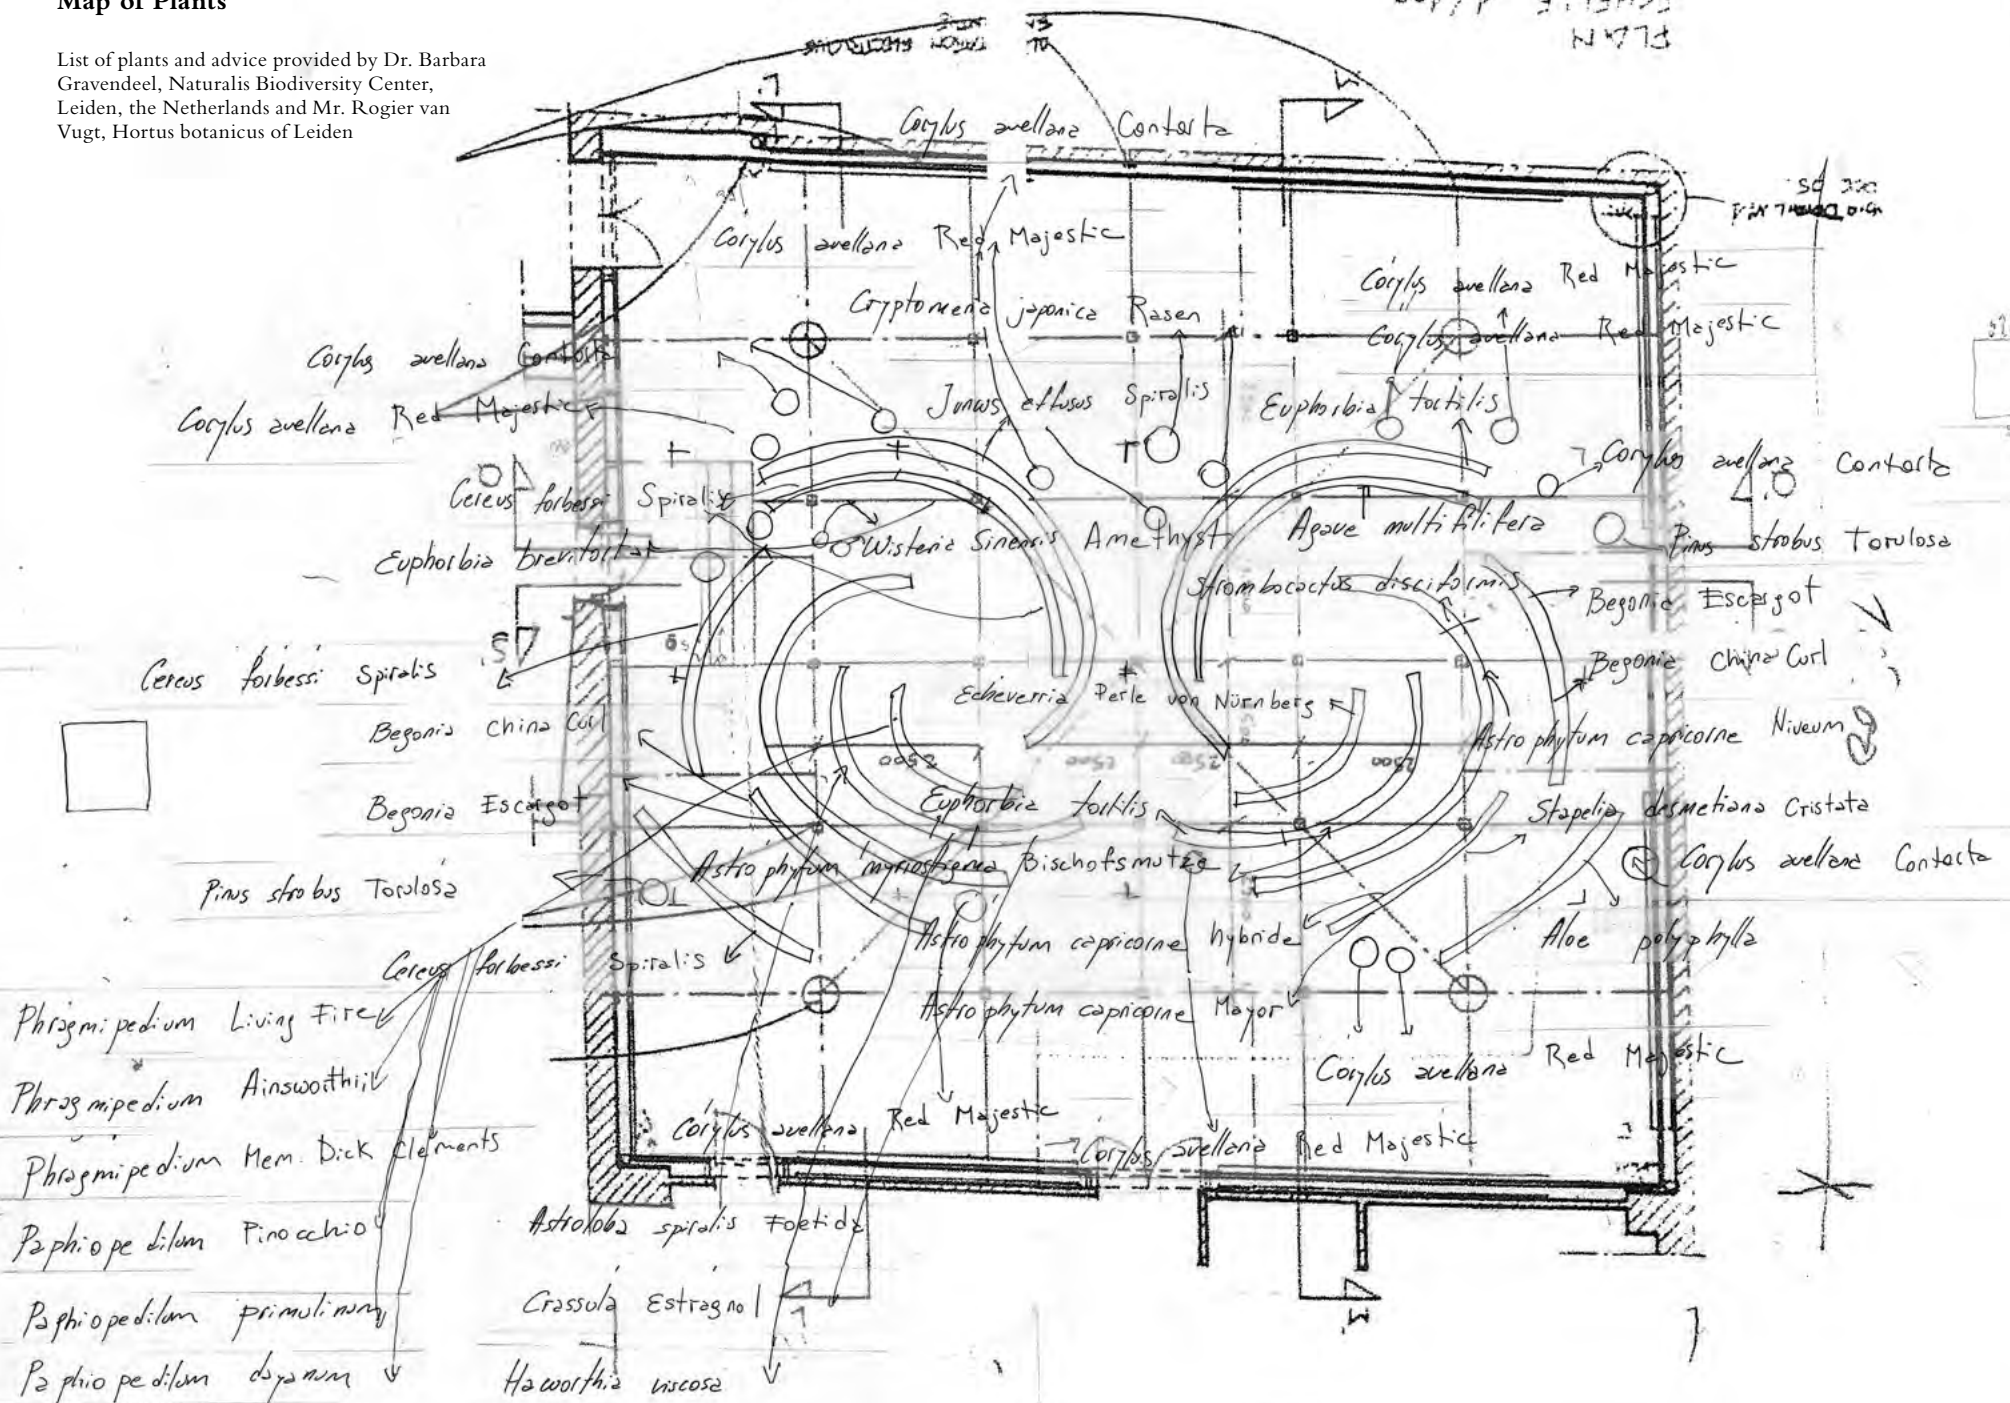 Map of Plants
List of plants and advice provided by Dr. Barbara
Gravendeel, Naturalis Biodiversity Center,
Leiden, the Netherlands and Mr. Rogier van
Vugt, Hortus botanicus of Leiden
PLAN
Corylus avellana Contorta
Corylus avellana Red Majestic
Corylus avellana Red Majestic
Cryptomeria japonica Rasen
Corylus avellana Red Majestic
Corylus avellana Contorta
Corylus avellana Red Majestic
Juncus effusus Spiralis
Euphorbia tortilis
Corylus avellana Contorta
Cereus forbessi Spiralis
Wisteria Sinensis Amethyst
Agave multifilifera
Pinus strobus Torulosa
Euphorbia brevitortar
Strombocactus disciformis
Begonia Escargot
Cereus forbessi Spiralis
Begonia China Curl
Echeverria Perle von Nürnberg
Begonia China Curl
Astrophytum capricorne Niveum
2500 2500 2500 2500
Begonia Escargot
Euphorbia tortilis
Stapelia desmetiana Cristata
Astrophytum myriostigma Bischofsmutze
Corylus avellana Contorta
Pinus strobus Torulosa
Astrophytum capricorne hybride
Aloe polyphylla
Cereus forbessi Spiralis
Phragmipedium Living Fire
Astrophytum capricorne Mayor
Corylus avellana Red Majestic
Phragmipedium Ainsworthii
Corylus avellana Red Majestic
Corylus avellana Red Majestic
Phragmipedium Mem. Dick Clements
Paphiopedilum Pinocchio
Astroloba spiralis Foetida
Paphiopedilum primulinum
Crassula Estragnol
Paphiopedilum dayanum
Haworthia viscosa